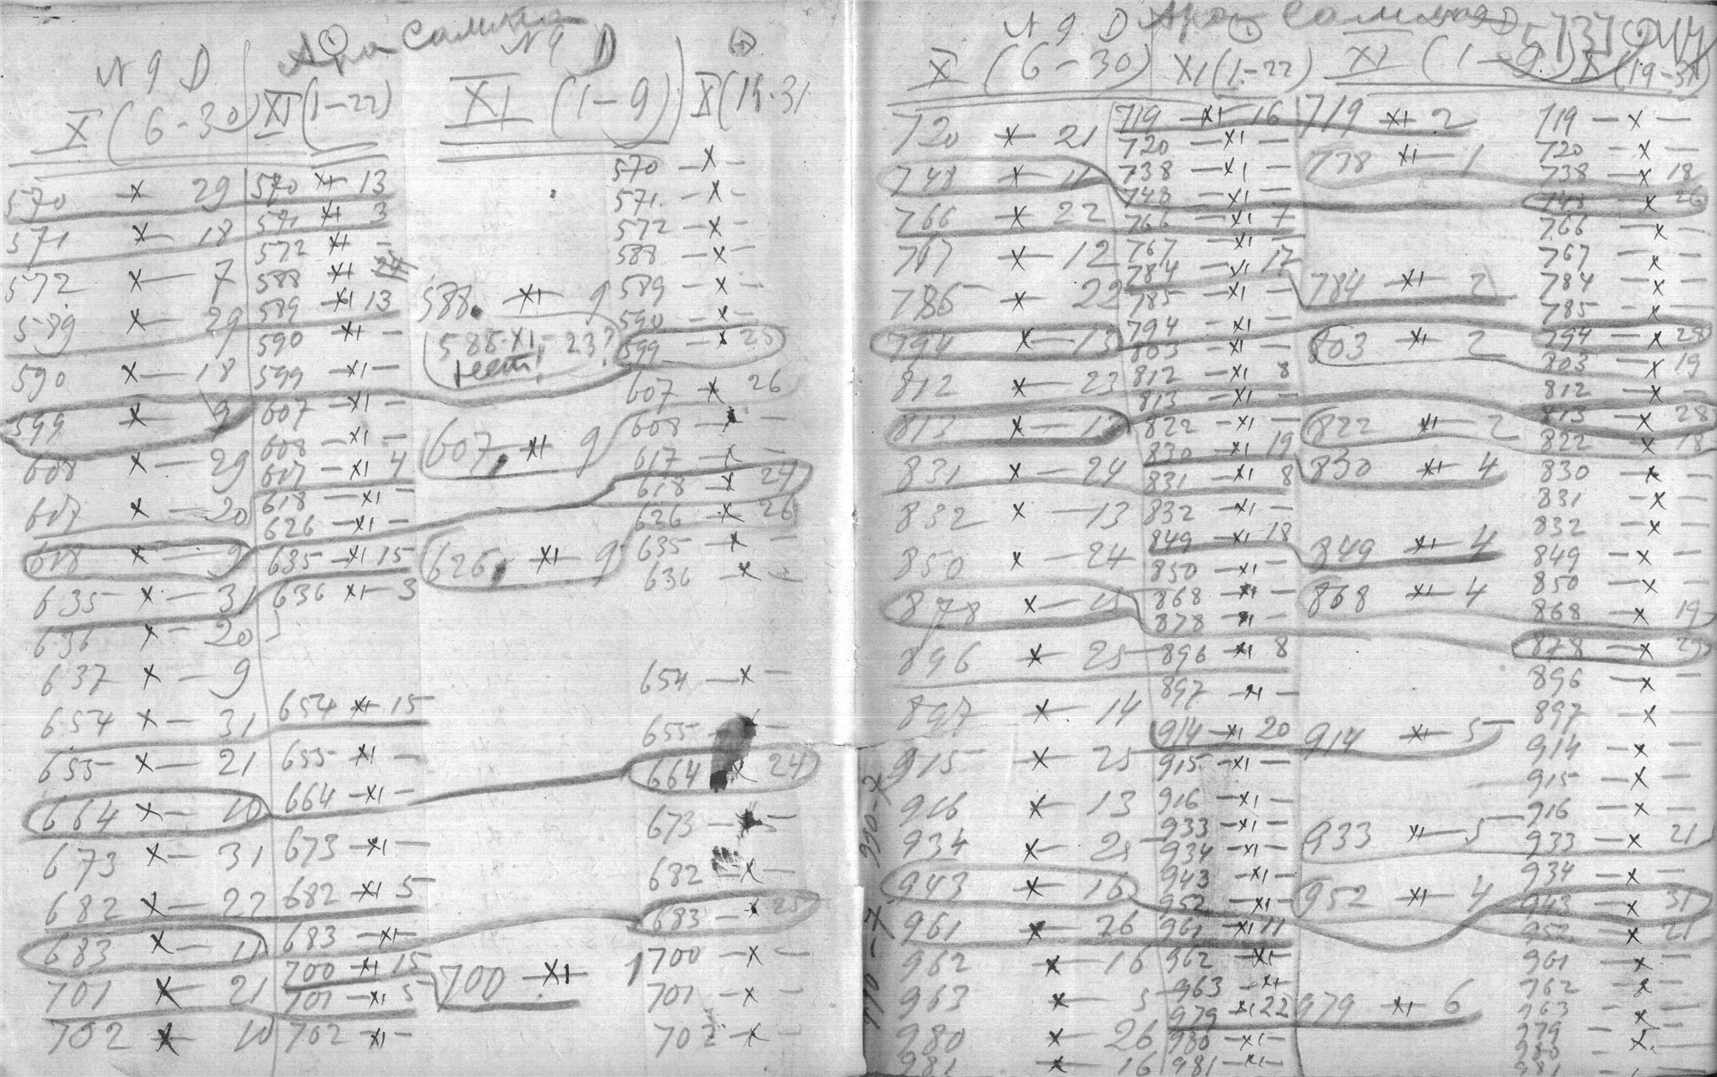 N 9 D
X (6-30)
570 x — 29
571 x — 18
572 x — 7
589 x — 29
590 x — 18
599 x — 9
608 x — 29
617 x — 20
618 x — 9
635 x — 31
636 x — 20
637 x — 9
654 x — 31
655 x — 21
664 x — 10
673 x — 31
682 x — 22
683 x — 11
701 x — 21
702 x — 10
XI (1-22)
570 XI — 13
571 XI — 3
572 XI —
588 XI —
589 XI 13
590 — XI —
599 — XI —
607 — XI —
608 — XI —
617 — XI 4
618 — XI —
626 — XI —
635 — XI 15
636 XI — 3
654 XI — 15
655 — XI —
664 — XI —
673 — XI —
682 — XI 5
683 — XI —
700 — XI 15
701 — XI 5
702 — XI —
N 9 D
XI (1-9)
588. — XI — 9
588-XI-23?
607, — XI 9
626, — XI — 9
700 — XI
X (19-31
570 — X —
571. — X —
572 — X —
588 — X —
589 — X —
590 — X —
599 — X 25
607 — X 26
608 — X —
617 — X —
618 — X 24
626 — X 26
635 — X —
636 — X —
654 — X —
655 — X —
664 — X 24
673 — X —
682 — X —
683 — X 25
700 — X —
701 — X —
702 — X —
N 9 D
X (6-30)
720 x — 21
748 x — 11
766 x — 22
767 x — 12
785 x — 22
794 x — 13
812 x — 23
813 x — 12
831 x — 24
832 x — 13
850 x — 24
878 x — 15
896 x — 25
897 x — 14
915 x — 25
916 x — 13
934 x — 25
943 x — 16
961 x — 26
962 x — 16
963 x — 5
980 x — 26
981 x — 16
XI (1-22)
719 — XI — 16
720 — XI —
738 — XI —
748 — XI —
766 — XI 7
767 — XI —
784 — XI 17
785 — XI —
794 — XI —
803 — XI —
812 — XI 8
813 — XI —
822 — XI —
830 — XI 19
831 — XI 8
832 — XI —
849 — XI 18
850 — XI —
868 — XI —
878 — XI —
896 — XI 8
897 — XI —
914 — XI 20
915 — XI —
916 — XI —
933 — XI —
934 — XI —
943 — XI —
952 — XI —
961 — XI 11
962 — XI —
963 — XI —
979 — XI 22
980 — XI —
981 — XI —
XI (1-9)
719 — XI 2
738 XI — 1
784 — XI — 2
803 — XI — 2
822 — XI — 2
830 XI — 4
849 — XI — 4
868 XI — 4
914 — XI — 5
933 XI — 5
952 — XI — 4
979 — XI — 6
X (19-31)
719 — X —
720 — X —
738 — X 18
748 — X 26
766 — X —
767 — X —
784 — X —
785 — X —
794 — X 28
803 — X 19
812 — X —
813 — X 28
822 — X 18
830 — X —
831 — X —
832 — X —
849 — X —
850 — X —
868 — X 19
878 — X 29
896 — X —
897 — X —
914 — X —
915 — X —
916 — X —
933 — X 21
934 — X —
943 — X 31
952 — X 21
961 — X —
762 — X —
963 — X —
979 — X.